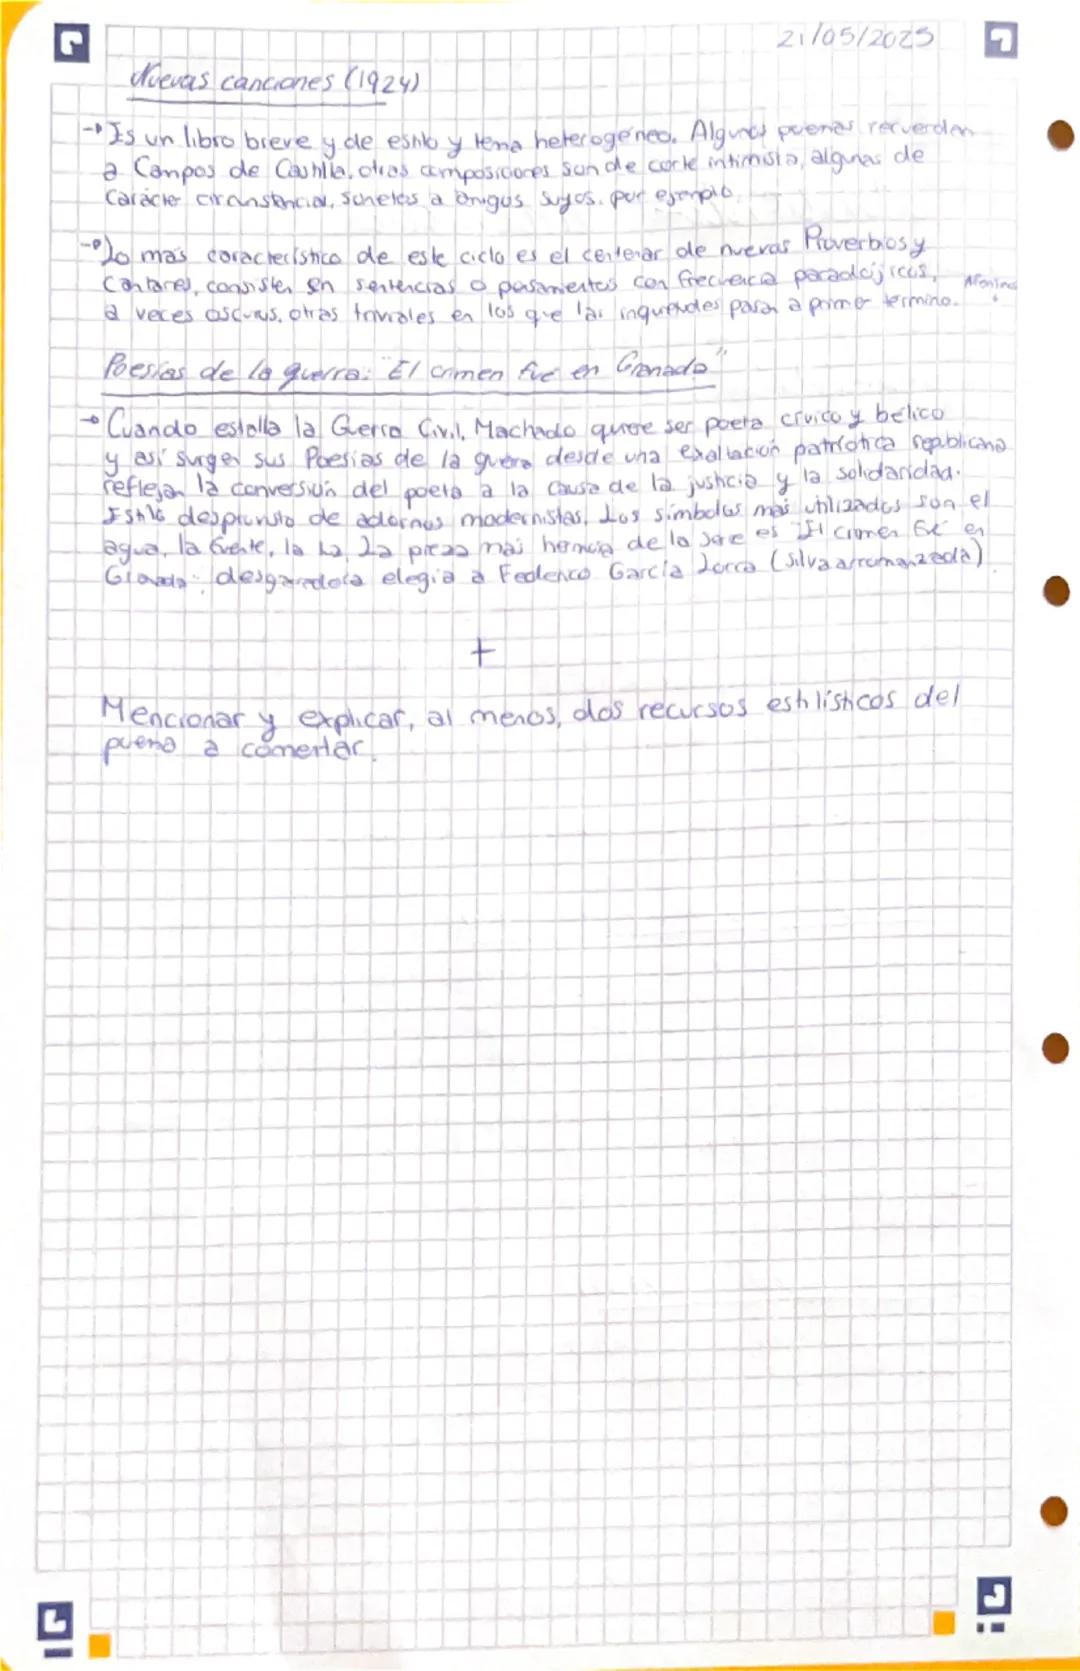 21/05/2025
Nuevas canciones (1924)
→ Es un libro breve y de estilo y tema heterogéneo. Algunos poemas recuerdan
a Campos de Castilla, otras composiciones son de corte intimista, algunas de
carácter circunstancial, sonetos a amigos suyos, por ejemplo.
→ Lo más característico de este ciclo es el centenar de nuevas Proverbios y
Cantares, consisten en sentencias o pensamientos con frecuencia paradójicos,
a veces oscuros, otras triviales en los que las inquietudes pasan a primer término.
Poesías de la guerra: "El crimen fue en Granada"
→ Cuando estalla la Guerra Civil, Machado quiere ser poeta cívico y bélico
y así surgen sus Poesías de la guerra desde una exaltación patriótica republicana
reflejan la conversión del poeta a la causa de la justicia y la solidaridad.
Estilo desprovisto de adornos modernistas. Los símbolos más utilizados son el
agua, la fuente, la luz. La pieza más de la serie es "El crimen fue en
Granada": desgarradora elegía a Federico García Lorca (silva arromanzada).
+
Mencionar y explicar, al menos, dos recursos estilísticos del
poema a comentar.